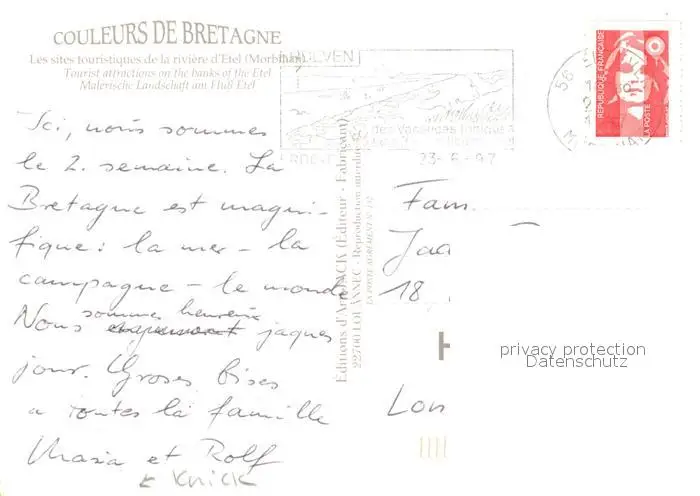 COULEURS DE BRETAGNE
Les sites touristiques de la rivière d'Etel (Morbihan)
Tourist attractions on the banks of the Etel
Malerische Landschaft am Fluß Etel
Ici, nous sommes
le 2. semaine. La
Bretagne est magni-
fique: la mer - la
campagne - le monde
sommes heureux
Nous jaques
jour. Groses bises
a toutes la famille
Maria et Rolf
+ Knick
Editions d'Art JACK (Éditeur - Fabricant)
22700 LOUANNEC - Reproduction interdite
LA POSTE AGREMENT N°
23-6-97
56
RÉPUBLIQUE FRANÇAISE
LA POSTE
Fam.
Jaa
18
Lon
privacy protection
Datenschutz